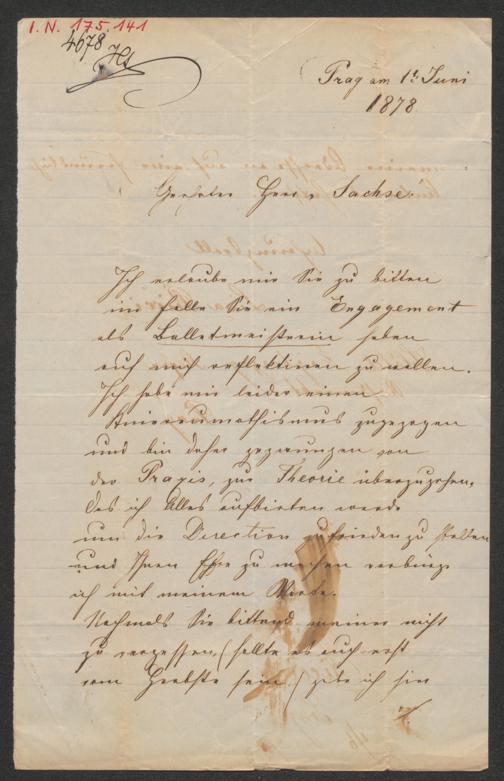 I.N. 175.141
4678 Hs
Prag am 1t Juni
1878
Geehrter Herr Sachse.
Ich erlaube mir Sie zu bitten
im Falle Sie ein Engagement
als Balletmeisterin haben
auf mich reflektiren zu wollen.
Ich habe mir leider einen
Kniereumathismus zugezogen
und bin daher gezwungen von
der Praxis, zur Theorie überzugehen.
Das ich Alles aufbieten werde
um die Direction zufrieden zu stellen
und Ihnen Ehre zu machen verbürge
ich mit meinem Worte.
Nochmals Sie bittend meiner nicht
zu vergessen, (sollte es auch erst
vom Herbste sein) gebe ich hier